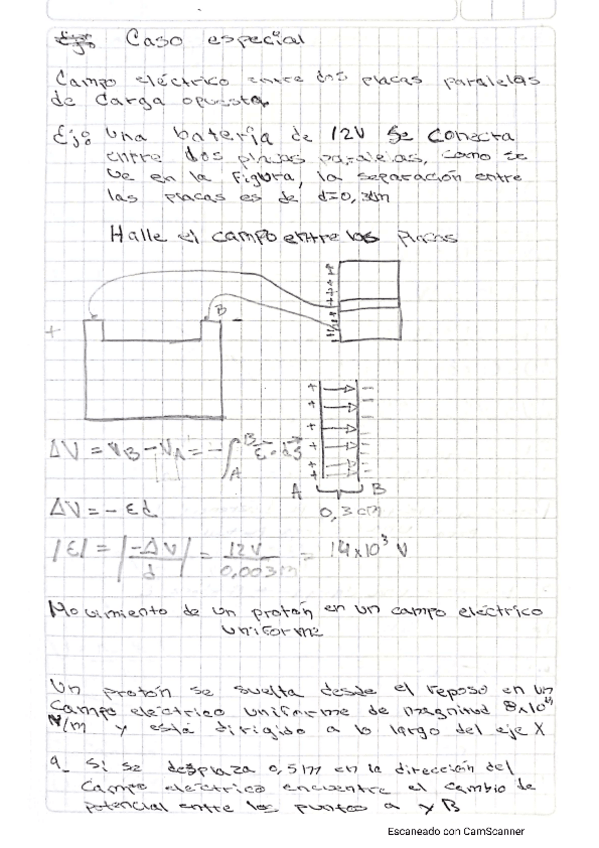 Caso especial
Campo eléctrico entre dos placas paralelas
de carga opuesta.
Ej: Una batería de 12V se conecta
entre dos placas paralelas, como se
ve en la figura, la separación entre
las placas es de d=0,3cm
Halle el campo entre los placas
B
+ -
+ -
ΔV = VB - VA = - ∫ᴬᴮ ε⃗ · ds⃗
A B
ΔV = - εd
0,3 cm
|ε| = |-ΔV/d| = 12V/0,003m = 14x10³ V
Movimiento de un protón en un campo eléctrico
uniforme
Un protón se suelta desde el reposo en un
campo eléctrico uniforme de magnitud 8x10⁴
V/m y está dirigido a lo largo del eje X
a_ Si se desplaza 0,5m en la dirección del
campo eléctrico encuentre el cambio de
potencial entre los puntos a y B
Escaneado con CamScanner